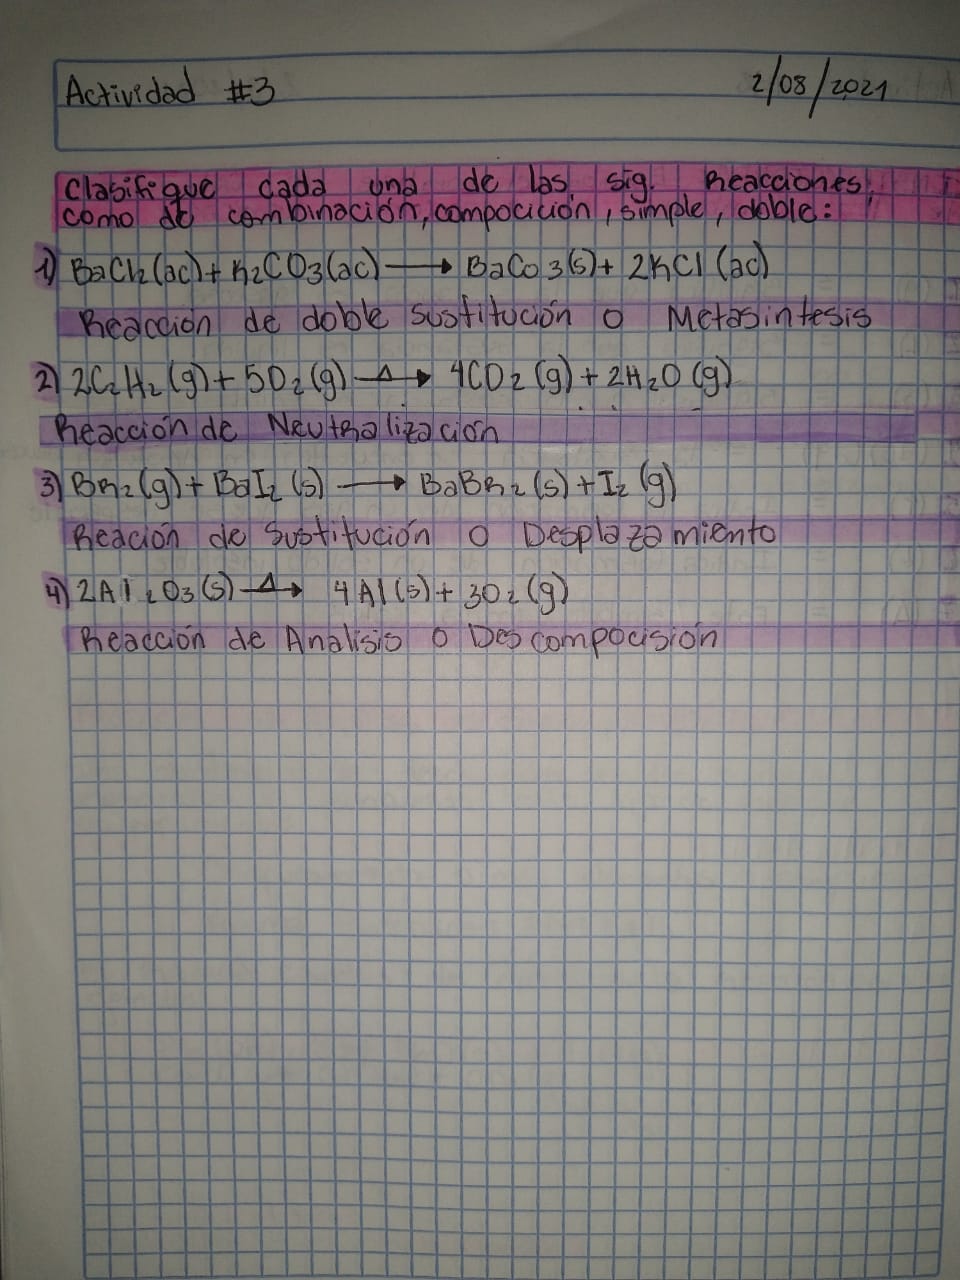 Actividad #3 2/08/2021
Clasifique cada una de las sig. Reacciones,
como de combinación, compocición, simple, doble:
1) BaCl2(ac)+K2CO3(ac) → BaCo3(s)+ 2KCl (ac)
Reacción de doble sustitución o Metasintesis
2) 2C2H2(g)+5O2(g) –Δ→ 4CO2(g)+2H2O(g)
Reacción de Neutralización
3) BR2(g)+BaI2(s) → BaBR2(s)+I2(g)
Reación de Sustitución o Desplazamiento
4) 2Al2O3(s) –Δ→ 4Al(s)+3O2(g)
Reacción de Analisis o Descompocisión